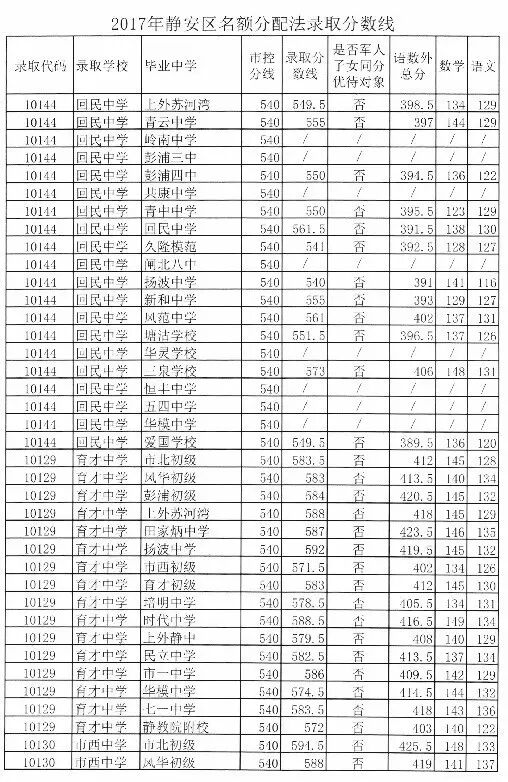 2017年静安区名额分配法录取分数线
录取代码 录取学校 毕业中学 市控分线 录取分数线 是否军人子女同分优待对象 语数外总分 数学 语文
10144 回民中学 上外苏河湾 540 549.5 否 398.5 134 129
10144 回民中学 青云中学 540 555 否 397 144 129
10144 回民中学 岭南中学 540 / / / / /
10144 回民中学 彭浦三中 540 / / / / /
10144 回民中学 彭浦四中 540 550 否 394.5 136 122
10144 回民中学 共康中学 540 / / / / /
10144 回民中学 青中中学 540 550 否 395.5 123 129
10144 回民中学 回民中学 540 561.5 否 391.5 138 130
10144 回民中学 久隆模范 540 541 否 392.5 128 127
10144 回民中学 闸北八中 540 / / / / /
10144 回民中学 扬波中学 540 540 否 391 141 116
10144 回民中学 新和中学 540 555 否 393 129 127
10144 回民中学 风范中学 540 561 否 402 137 131
10144 回民中学 塘沽学校 540 551.5 否 396.5 137 126
10144 回民中学 华灵学校 540 / / / / /
10144 回民中学 三泉学校 540 573 否 406 148 131
10144 回民中学 恒丰中学 540 / / / / /
10144 回民中学 五四中学 540 / / / / /
10144 回民中学 华模中学 540 / / / / /
10144 回民中学 爱国学校 540 549.5 否 389.5 136 120
10129 育才中学 市北初级 540 583.5 否 412 145 128
10129 育才中学 风华初级 540 583 否 413.5 140 134
10129 育才中学 彭浦初级 540 584 否 420.5 145 132
10129 育才中学 上外苏河湾 540 588 否 418 145 129
10129 育才中学 田家炳中学 540 587 否 423.5 146 135
10129 育才中学 扬波中学 540 592 否 419.5 145 132
10129 育才中学 市西初级 540 571.5 否 402 134 126
10129 育才中学 育才初级 540 583 否 412 145 130
10129 育才中学 培明中学 540 578.5 否 405.5 134 131
10129 育才中学 时代中学 540 588.5 否 416.5 149 134
10129 育才中学 上外静中 540 579.5 否 408 140 129
10129 育才中学 民立中学 540 582.5 否 413.5 137 134
10129 育才中学 市一中学 540 586 否 409.5 142 129
10129 育才中学 华模中学 540 574.5 否 414.5 144 132
10129 育才中学 七一中学 540 583.5 否 418 143 136
10129 育才中学 静教院附校 540 572 否 403 140 122
10130 市西中学 市北初级 540 594.5 否 425.5 148 133
10130 市西中学 风华初级 540 588 否 419 141 137